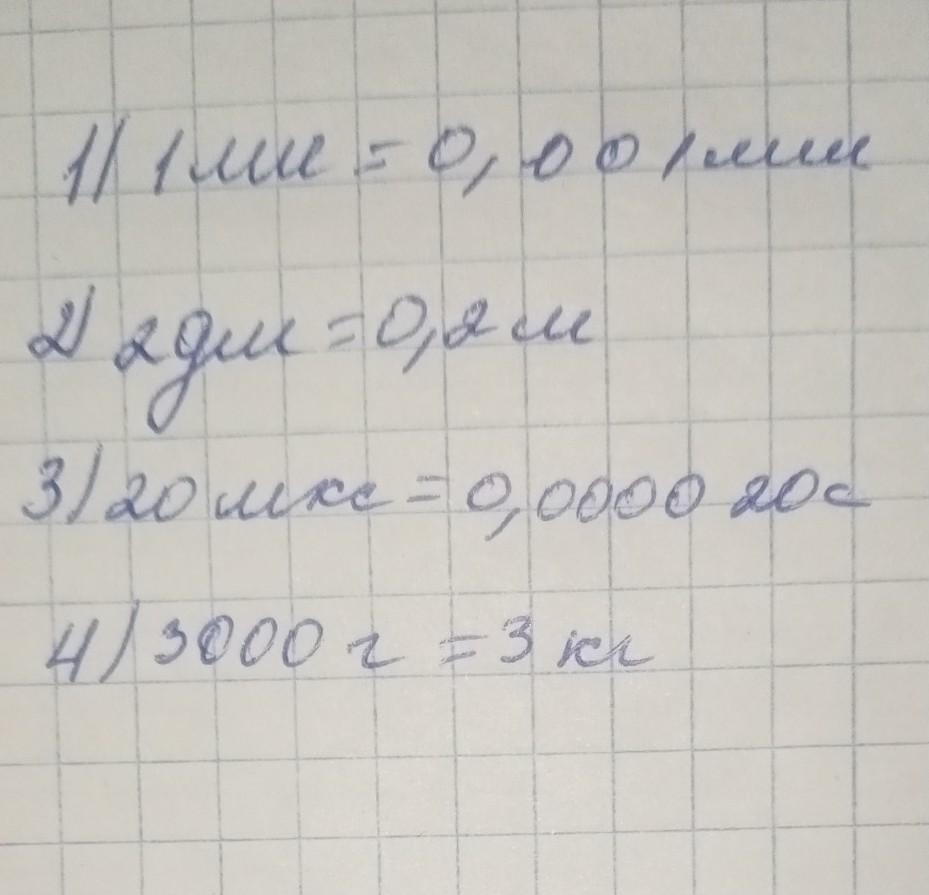 1) 1 мм = 0,001 мм
2) 2 дм = 0,2 м
3) 20 мкс = 0,000020 с
4) 3000 г = 3 кг